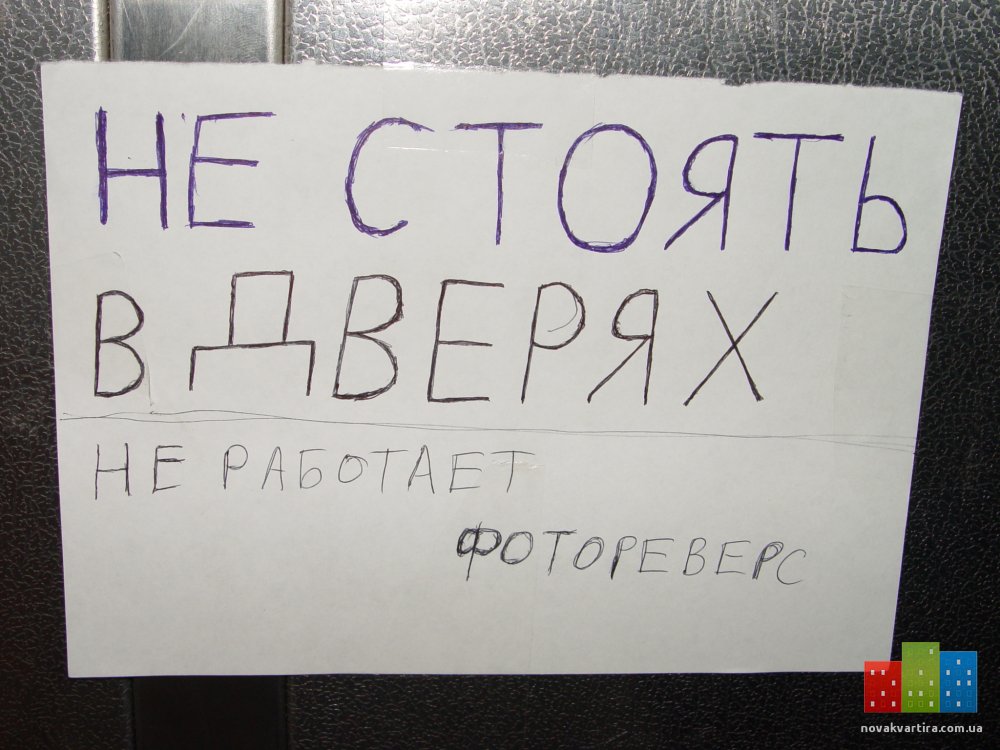 НЕ СТОЯТЬ
В ДВЕРЯХ
НЕ РАБОТАЕТ
ФОТОРЕВЕРС
novakvartira.com.ua